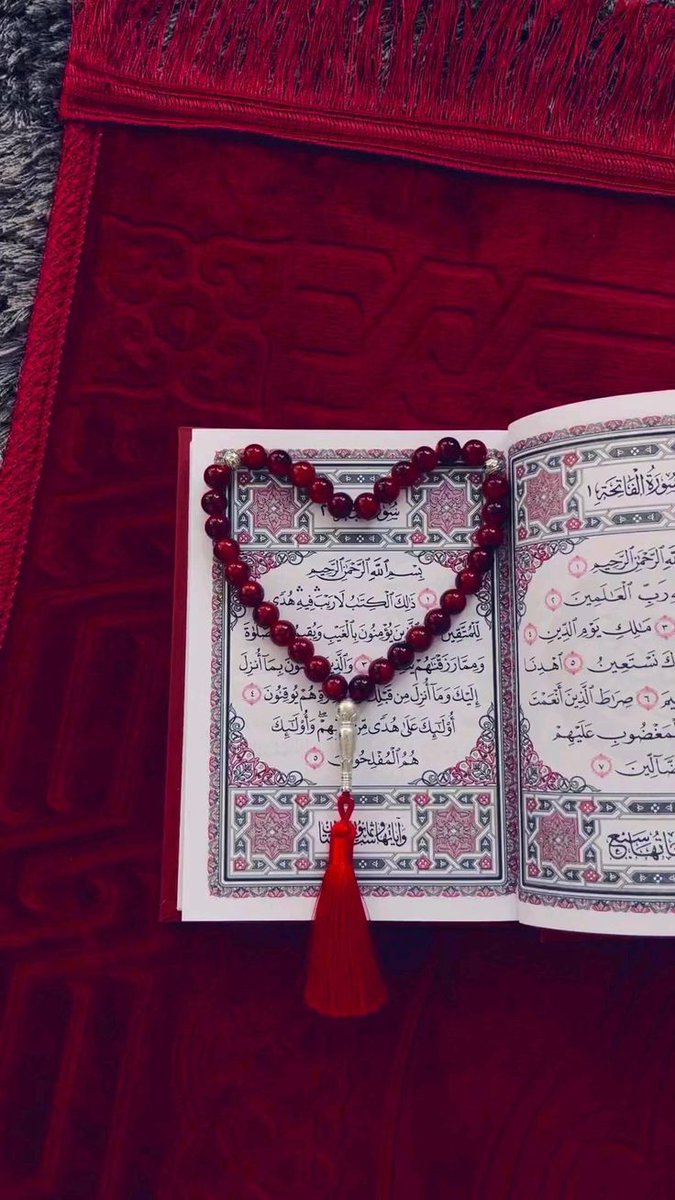 سُورَةُ الْفَاتِحَةِ ١
الرَّحْمَٰنِ الرَّحِيمِ ١
رَبِّ الْعَٰلَمِينَ ٢
٣ مَٰلِكِ يَوْمِ الدِّينِ ٤
نَسْتَعِينُ ٥ اهْدِنَا
٦ صِرَاطَ الَّذِينَ أَنْعَمْتَ
الْمَغْضُوبِ عَلَيْهِمْ
الضَّالِّينَ ٧
وَآيَاتُهَا سَبْعٌ
سُورَةُ
بِسْمِ اللَّهِ الرَّحْمَٰنِ الرَّحِيمِ
١ ذَٰلِكَ الْكِتَٰبُ لَا رَيْبَ ۛ فِيهِ ۛ هُدًى
لِّلْمُتَّقِينَ يُؤْمِنُونَ بِالْغَيْبِ الصَّلَوٰةَ
وَمِمَّا رَزَقْنَٰهُمْ ٣ وَالَّذِينَ بِمَا أُنزِلَ
إِلَيْكَ وَمَا أُنزِلَ مِن هُمْ يُوقِنُونَ ٤
أُو۟لَٰئِكَ عَلَىٰ هُدًى وَأُو۟لَٰئِكَ
هُمُ الْمُفْلِحُونَ ٥